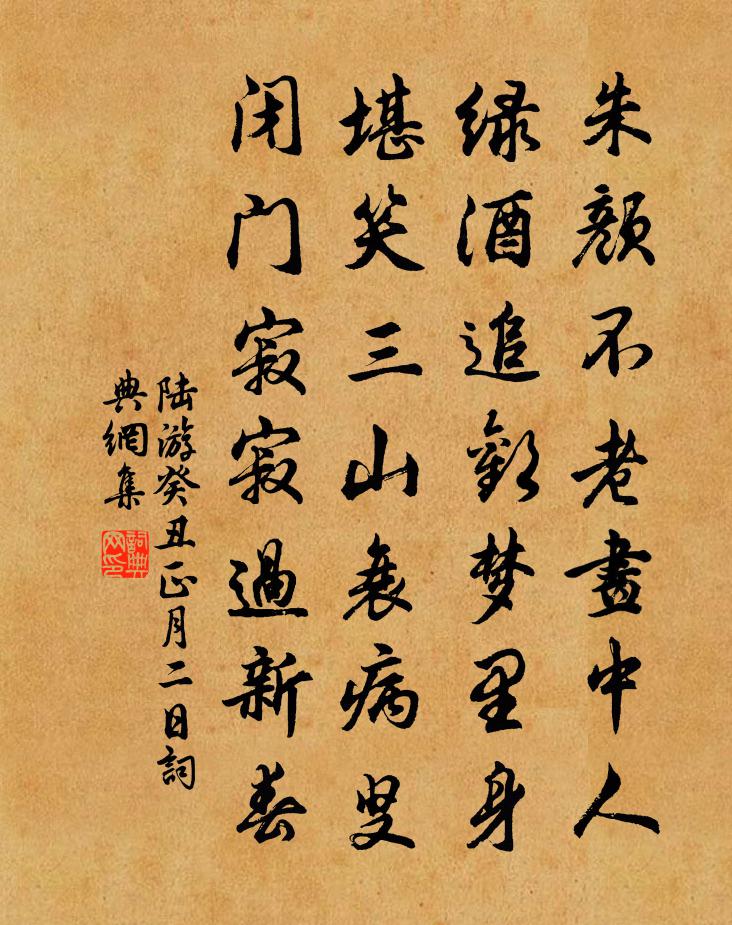 朱颜不老畫中人
绿酒追歡梦里身
堪笑三山衰病叟
闭门寂寂過新春
陆游癸丑正月二日詞
典網集
詞典
网印